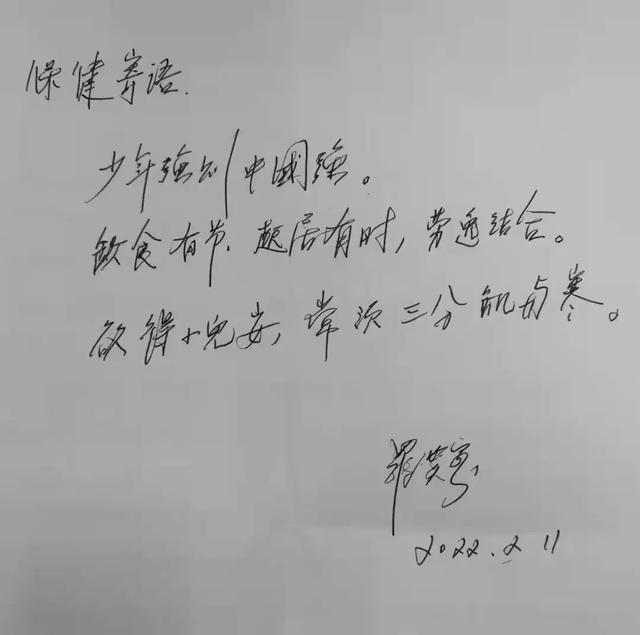 保健寄语.
少年強则中國強。
飲食有节、起居有时，劳逸结合。
欲得小兒安，常须三分飢与寒。
2022.2.11